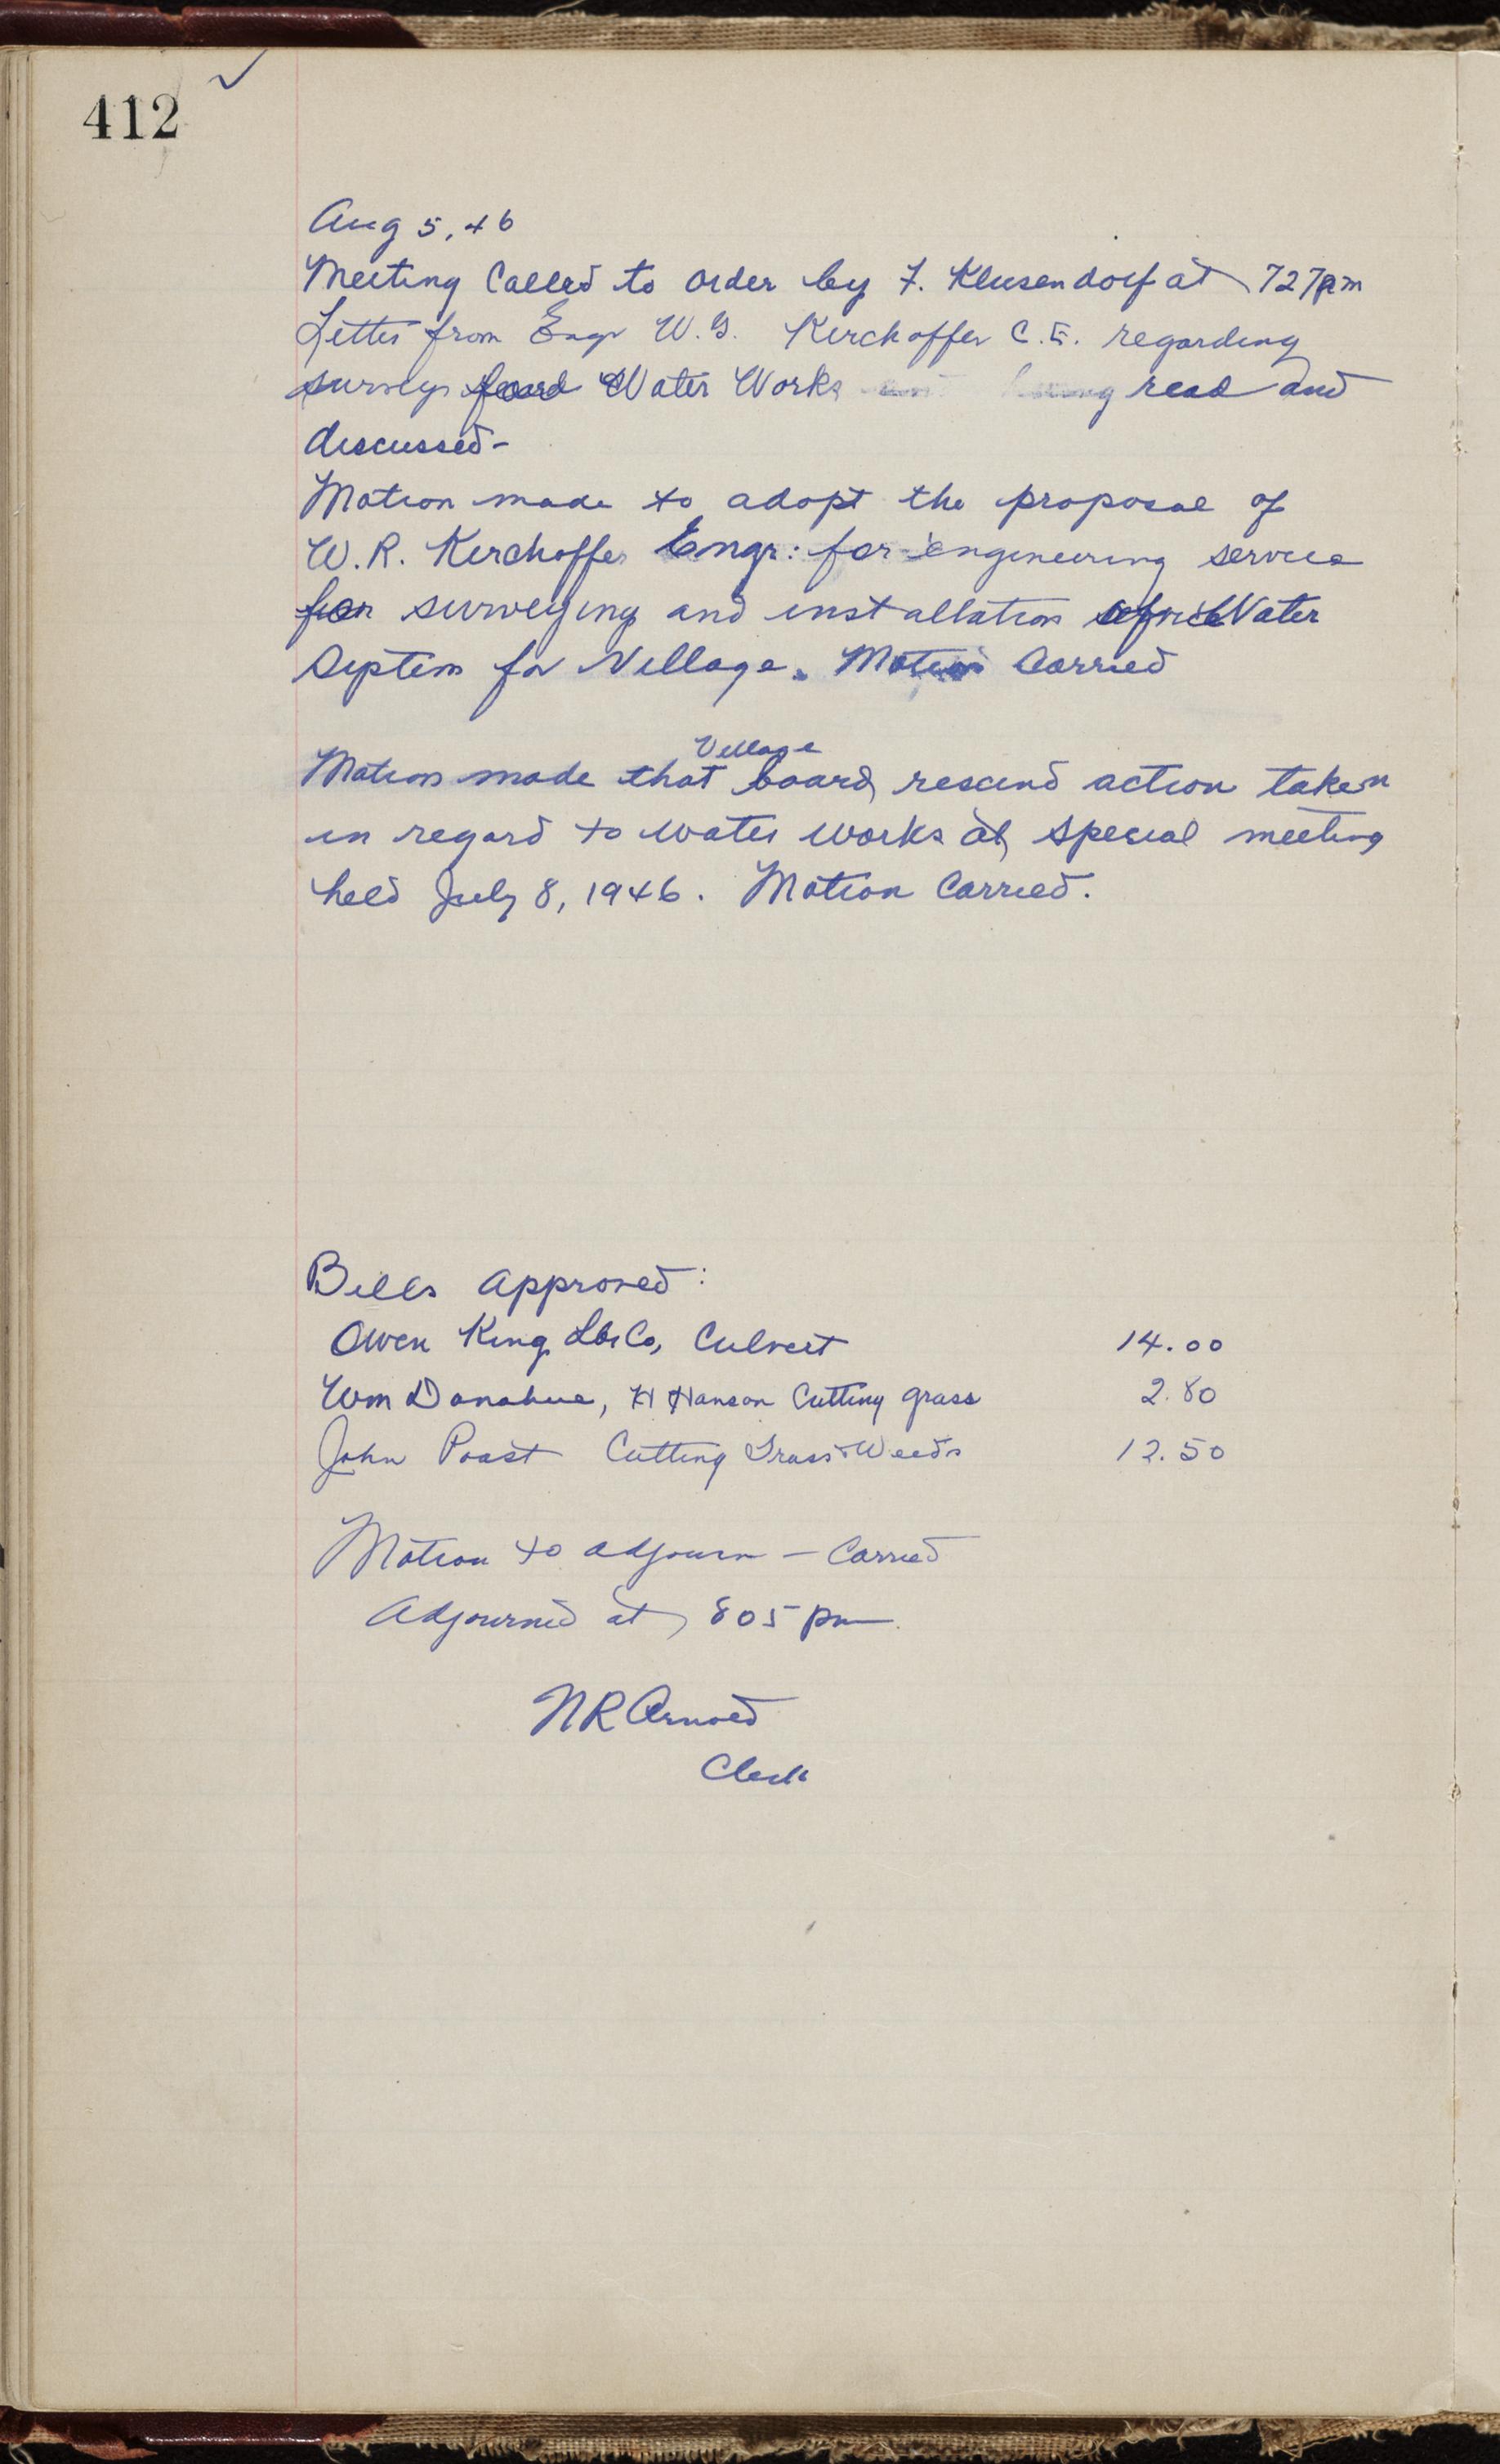 412
Aug 5, 46
Meeting Called to order by F. Klusendorf at 727pm
Letter from Engr W.G. Kirchoffer C.E. regarding
survey for Water Works read and
discussed-
Motion made to adopt the proposal of
W.R. Kirchoffer Engr: for engineering service
for surveying and installation of Water
System for Village. Motion Carried
Village
Motion made that board rescind action taken
in regard to water works at special meeting
held July 8, 1946. Motion Carried.
Bills approved:
Owen King Lbr Co, Culvert 14.00
Wm Donahue, H Hanson Cutting grass 2.80
John Poast Cutting Grass & Weeds 12.50
Motion to adjourn - Carried
Adjourned at 805 pm
NR Arnold
Clerk